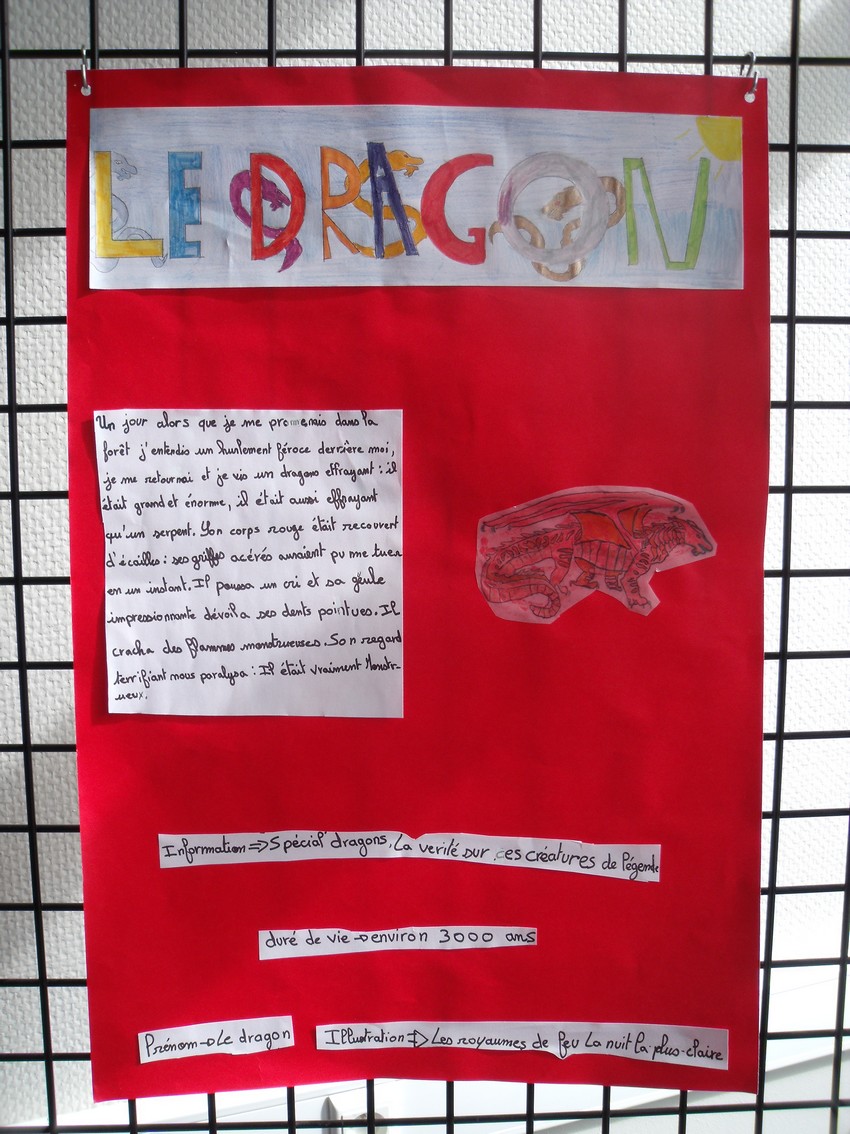 LE DRAGON
Un jour alors que je me promenais dans la
forêt j'entendis un hurlement féroce derrière moi,
je me retournai et je vis un dragons effrayant : il
était grand et énorme, il était aussi effrayant
qu'un serpent. Son corps rouge était recouvert
d'écailles : ses griffes acérés auraient pu me tuer
en un instant. Il poussa un cri et sa geule
impressionnante dévoila ses dents pointues. Il
cracha des flammes monstrueuses. Son regard
terrifiant nous paralysa : Il était vraiment Monstr-
ueux.
Information => Spécial dragons, La verité sur ces créatures de légende
duré de vie → environ 3000 ans
Prénom → Le dragon
Illustration => Les royaumes de feu La nuit la-plus-claire